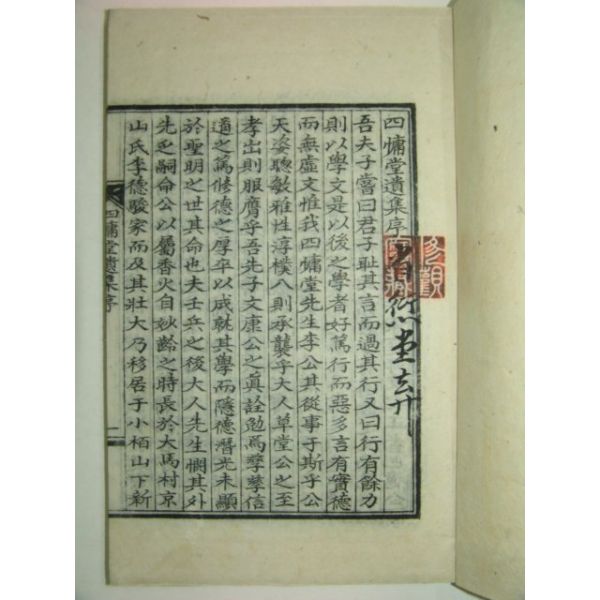 四慵堂遺集序
吾夫子嘗曰君子恥其言而過其行又曰行有餘力
則以學文是以後之學者好篤行而惡多言有實德
而無虛文惟我四慵堂先生李公其從事于斯乎公
天姿聰敏雅性淳樸入則承襲乎大人草堂公之至
孝出則服膺乎吾先子文康公之眞詮勉爲孳孳信
道之篤修德之厚卒以成就其學而隱德潛光未顯
於聖明之世其命也夫壬兵之後大人先生憫其外
先之嗣命公以屬香火自妙齡之時長於大馬村京
山氏李德駿家而及其壯大乃移居于小栢山下新
四慵堂遺集序
一